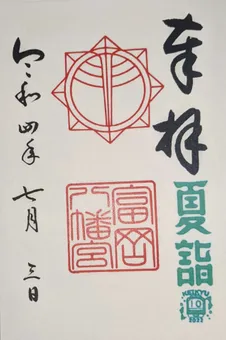 奉拝
夏詣
KEIKYU
富岡
八幡宮
令和四年 七月 三日